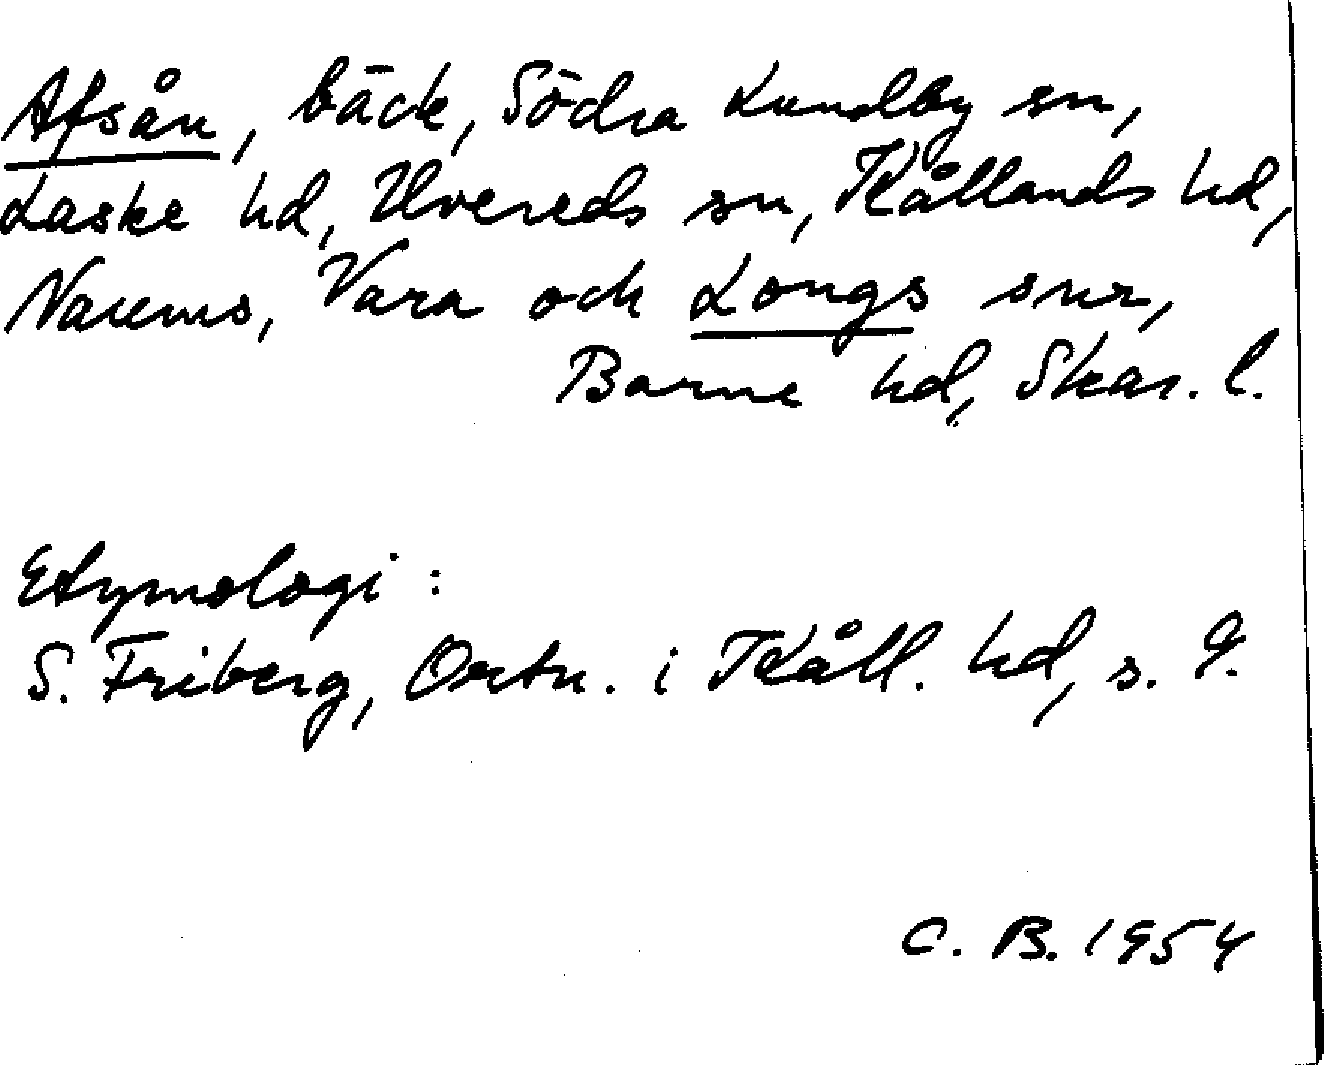 Afsån, bäck, Södra Lundby sn,
Laske hd, Uvereds sn, Kållands hd,
Naums, Vara och Longs snr,
Barne hd, Skar. l.
Etymologi :
S. Friberg, Ortn. i Kåll. hd, s. 9.
C. B. 1954